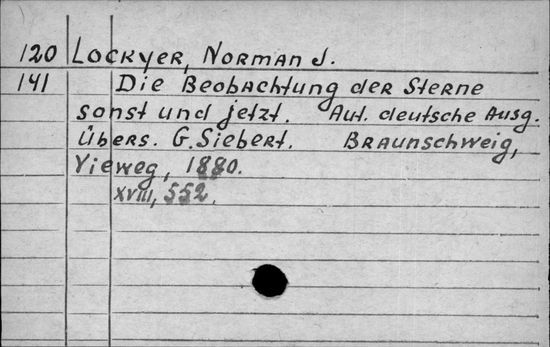 120 Lockyer, Norman J.
141 Die Beobachtung der Sterne
sonst und jetzt. Aut. deutsche Ausg.
Übers. G. Siebert. Braunschweig,
Vieweg, 1880.
XVIII, 552.